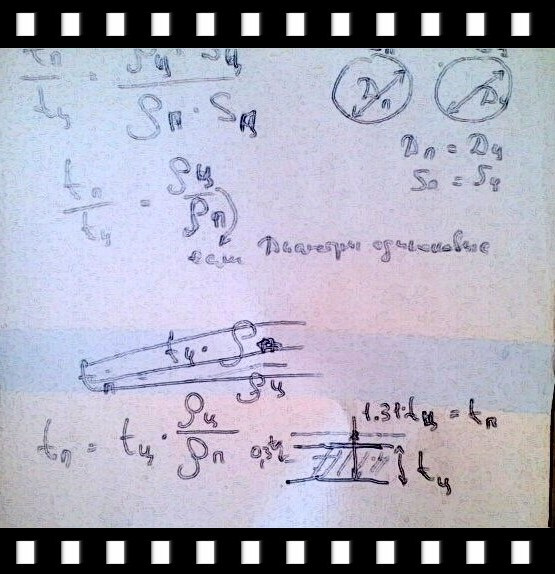 tп / tц = ρц · Sц / ρп · Sп
Dп Dц
Dп = Dц
Sп = Sц
tп / tц = ρц / ρп
если Диаметры одинаковые
tц · ρ
ρц
tп = tц · ρц / ρп
1.31·tц = tп
tц